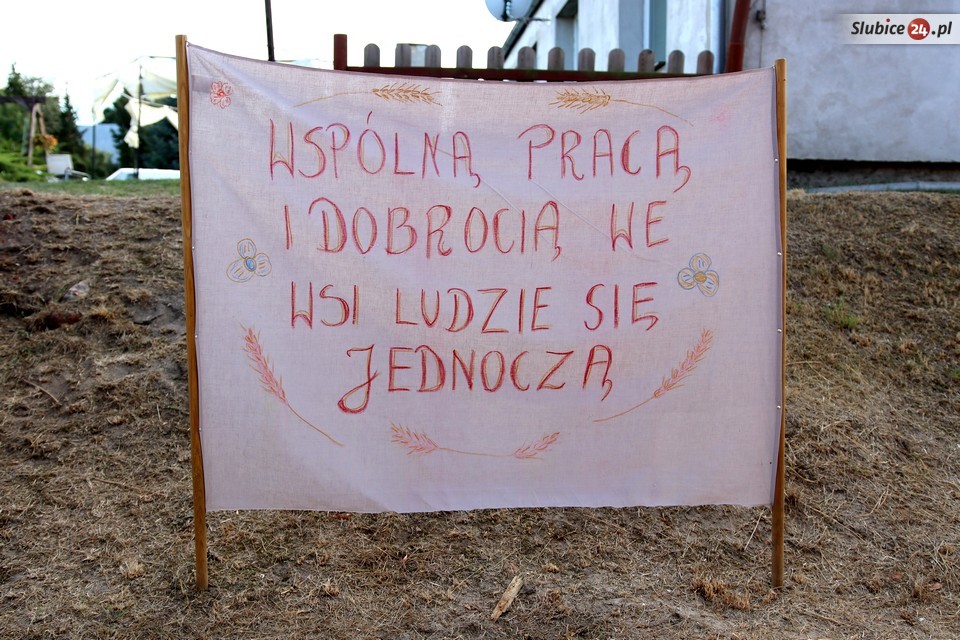 Slubice24.pl
WSPÓLNĄ PRACĄ
I DOBROCIĄ WE
WSI LUDZIE SIĘ
JEDNOCZĄ